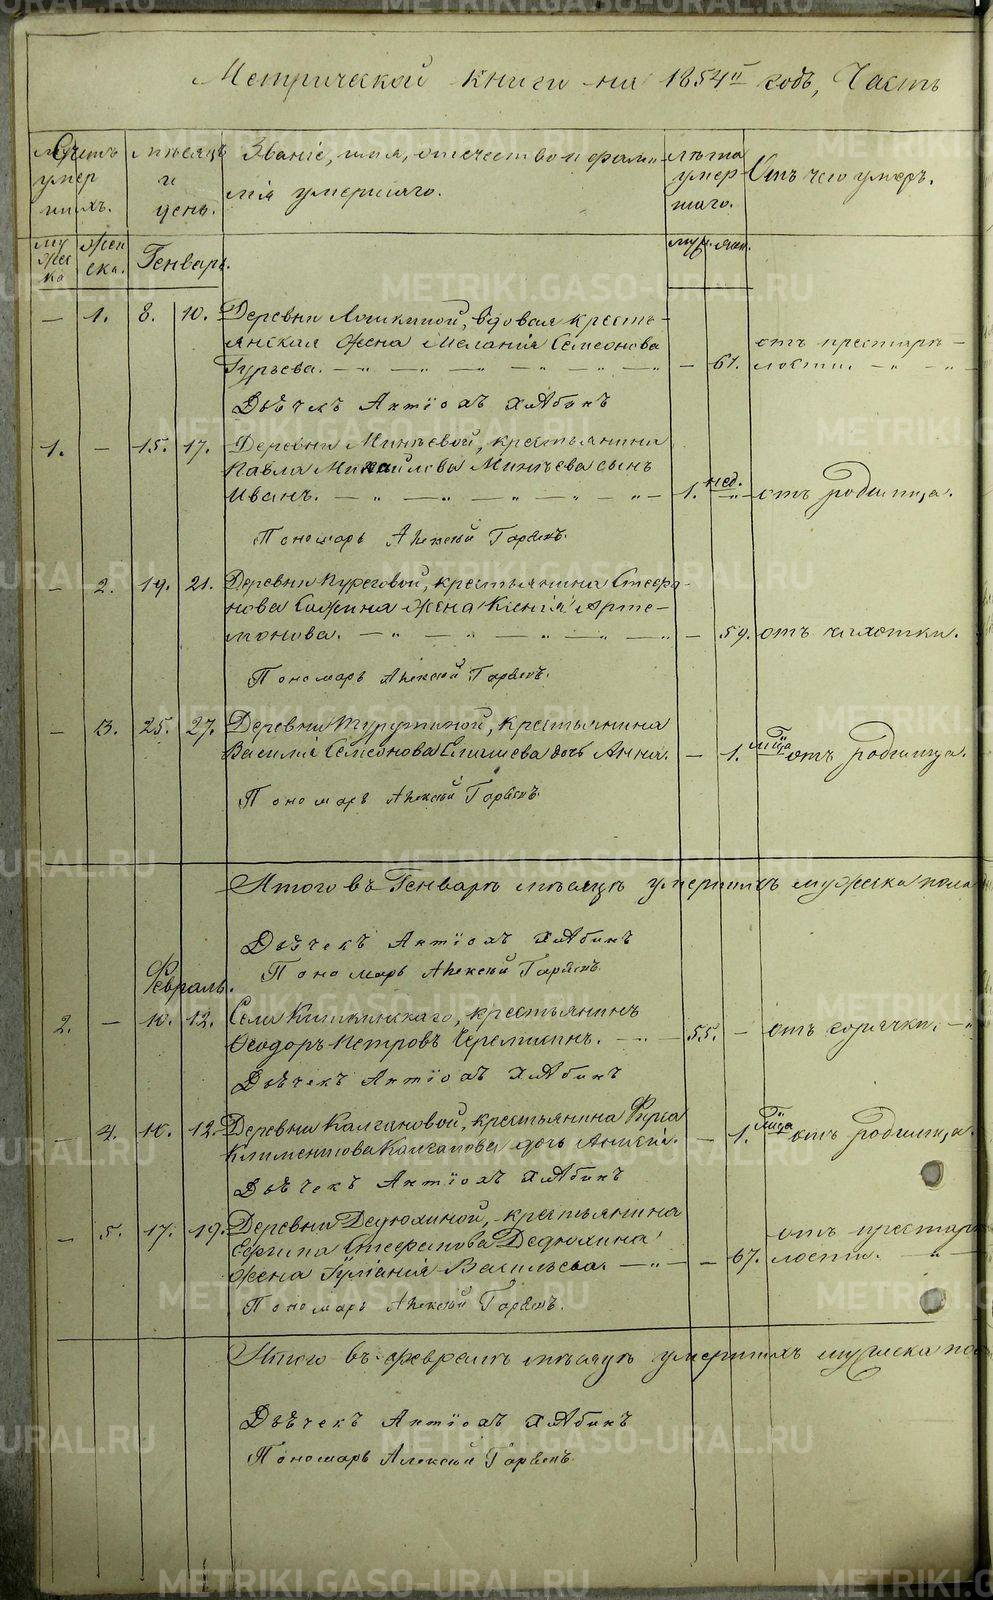 Метрической книги на 1854й годъ, Часть
Счетъ умершихъ.
мѣсяцъ и день.
Званіе, имя, отечество и фамилія умершаго.
лѣта умершаго.
Отъ чего умеръ.
мужеска
женска.
Генварь.
муж. жен.
— 1. 8. 10. Деревни вдовая кресть-
янская жена Меланія Семеонова
Гурьева. — 61. отъ престарѣ-
лости.
Дьячекъ Антіохъ Хлѣбинъ
1. — 15. 17. Деревни Минѣевой, крестьянина
Павла Михайлова Минѣева сынъ
Иванъ. 1. нед. отъ родимца.
Пономарь Алексѣй
— 2. 19. 21. Деревни крестьянина Стефа-
нова жена Ксенія Арте-
монова. — 59. отъ чихотки.
Пономарь Алексѣй
— 3. 25. 27. Деревни крестьянина
Василія Семеонова дочь Анна. — 1. отъ родимца.
Пономарь Алексѣй
Итого въ Генварѣ мѣсяцѣ умершихъ мужеска пола
Дьячекъ Антіохъ Хлѣбинъ
Пономарь Алексѣй
Февраль.
2. — 10. 12. Села крестьянинъ
Ѳеодоръ Петровъ 55. — отъ горячки.
Дьячекъ Антіохъ Хлѣбинъ
— 4. 10. 12. Деревни Калгановой, крестьянина Фирса
Климентова Калганова дочь — 1. отъ родимца.
Дьячекъ Антіохъ Хлѣбинъ
— 5. 17. 19. Деревни Дедюхиной, крестьянина
Ефима Стефанова Дедюхина
жена Іуліанія Васильева. — 67. отъ престарѣ-
лости.
Пономарь Алексѣй
Итого въ февралѣ мѣсяцѣ умершихъ мужеска по
Дьячекъ Антіохъ Хлѣбинъ
Пономарь Алексѣй
METRIKI.GASO-URAL.RU